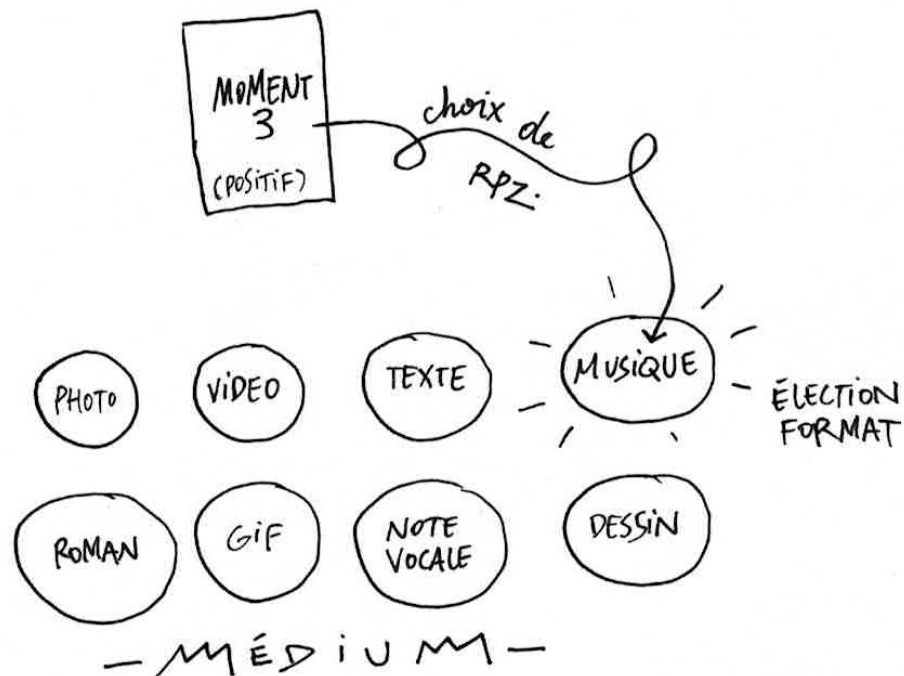 MOMENT
3
(POSITIF)
choix de
RPZ.
PHOTO
VIDEO
TEXTE
MUSIQUE
ÉLECTION
FORMAT
ROMAN
GIF
NOTE
VOCALE
DESSIN
- MÉDIUM -